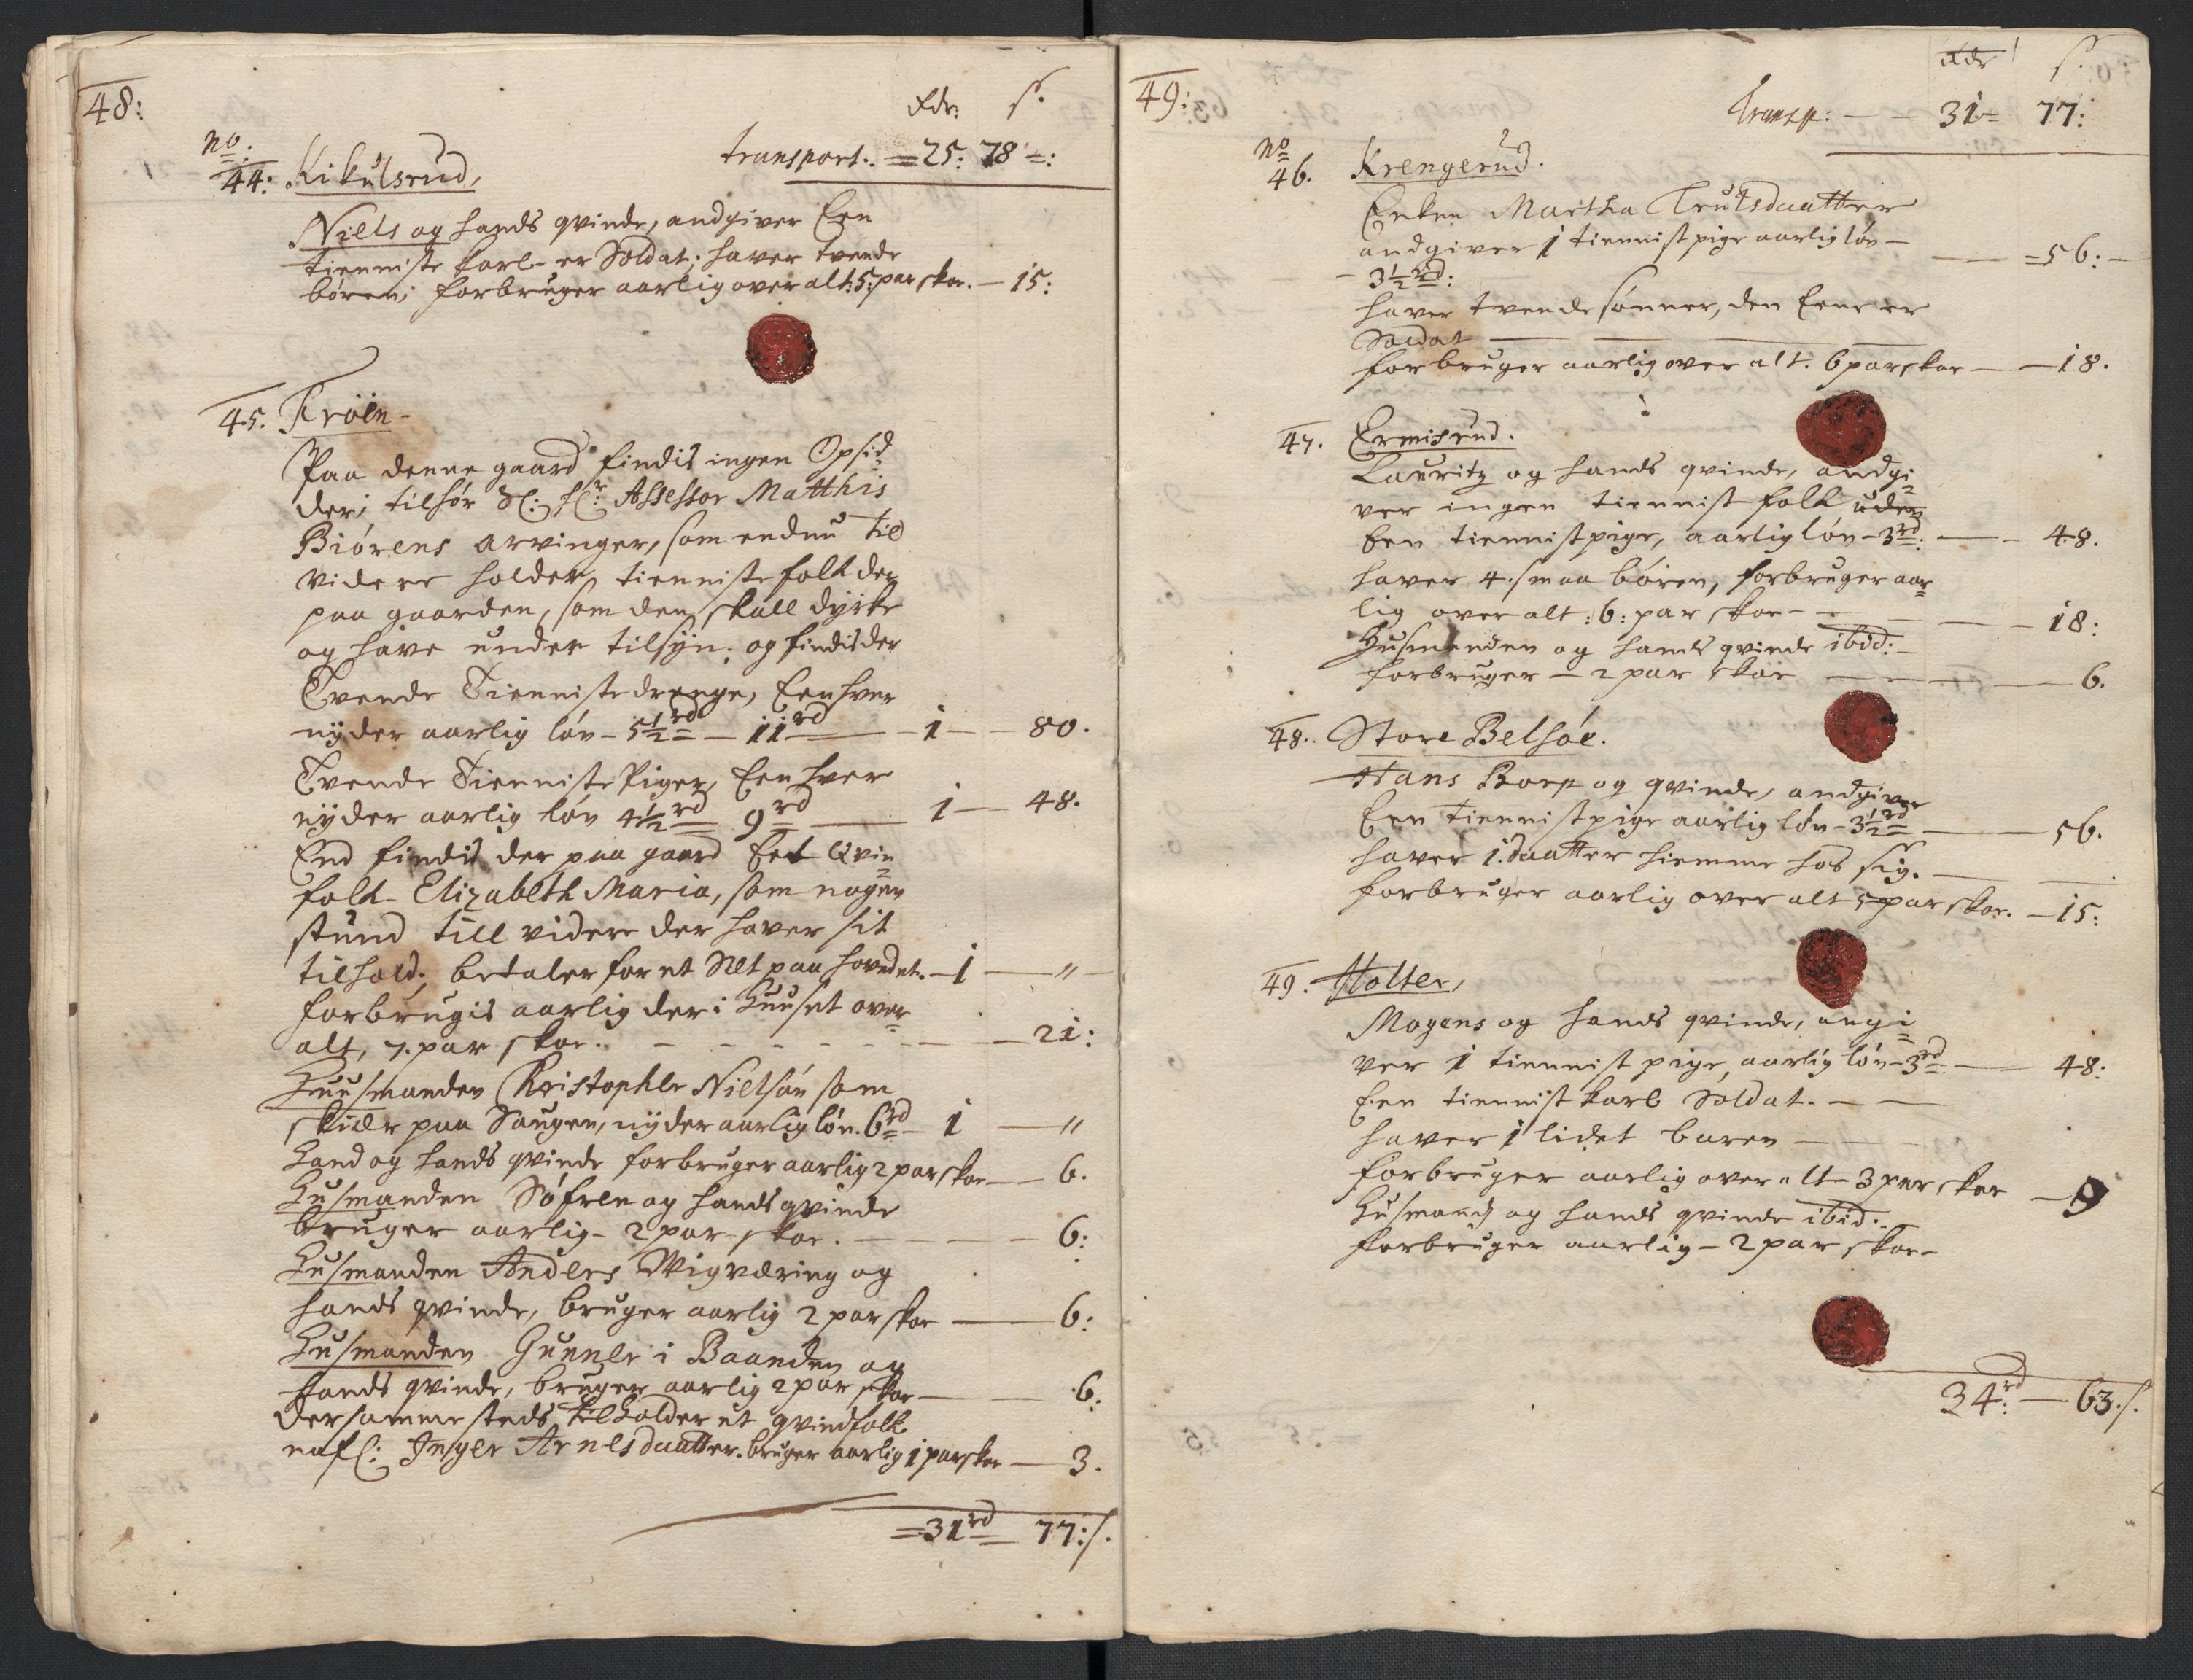 48:
Rdr: s.
transport. =25: 78 =:
No.
44: Kikulsrud,
Niels og hands qvinde, andgiver Een
tienniste karl er Soldat; haver tvende
bören; forbruger aarlig over alt: 5: par skoe. — 15:
45. Fröen
Paa denne gaard findis ingen Opsid
der; tilhör Sl: Hr: Assessor Matthis
Biörens arvinger, som endnu til
videre holder tienniste folk der
paa gaarden, som den skall dyrke
og have under tilsÿn; og findis der
Tvende Tienniste drenge, Een hver
nÿder aarlig lön - 5½ rd — 11 rd — 1 — 80.
Tvende Tienniste Piger, Een hver
nÿder aarlig lön 4½ rd 9 rd — 1 — 48.
End findis der paa gaard Eet Qvin
folk - Elizabeth Maria, som nogen
stund till videre der haver sit
tilhold; betaler for et Slet paa hovedet. — 1 — "
forbrugis aarlig der i Huuset over
alt, 7. par skoe. — 21:
Huusmanden Christopher Nielsön som
skiær paa Saugen, nÿder aarlig lön. 6 rd — 1 — "
Hand og hands qvinde forbruger aarlig 2 par skoe — 6.
Husmanden Söfren og hands qvinde
bruger aarlig - 2 par skoe. — 6:
Husmanden Anders Wigværing og
hands qvinde, bruger aarlig 2 par skoe — 6:
Husmanden Gunner i Baanden og
hands qvinde, bruger aarlig 2 par skoe — 6:
der samme steds tilholder et qvindfolk
nafl: Inger Arnesdaatter. bruger aarlig 1 par skoe — 3.
=31 rd — 77: s.
49:
Rdr s.
Transp: — 31 = 77:
No
46. Krengerud.
Enken Martha Trulsdaatter
andgiver 1 tiennist pige aarlig lön —
- 3½ rd: — =56: —
haver tvende sönner, den Eene er
Soldat —
forbruger aarlig over alt. 6 par skoe — 18.
47. Ermisrud.
Lauritz og hands qvinde, andgi
ver ingen tiennist folk uden
Een tiennist pige, aarlig lön - 3 rd: — 48.
haver 4. smaa bören, forbruger aar
lig over alt: 6: par skoe — 18:
Husmanden og hands qvinde ibid: —
forbruger — 2 par skoe — 6.
48. Store Belhöe.
Hans Borp og qvinde, andgiver
Een tiennist pige aarlig lön - 3½ rd — 56.
haver 1. daatter hiemme hos sig. —
forbruger aarlig over alt 5 par skoe. — 15:
49. Holter,
Mogens og hands qvinde, angi
ver 1 tiennist pige, aarlig lön - 3 rd — 48:
Een tiennist karl Soldat. —
haver 1 lidet baren —
forbruger aarlig over alt - 3 par skoe — 9
Husmand og hands qvinde ibid:
forbruger aarlig — 2 par skoe —
34: rd — 63. s.